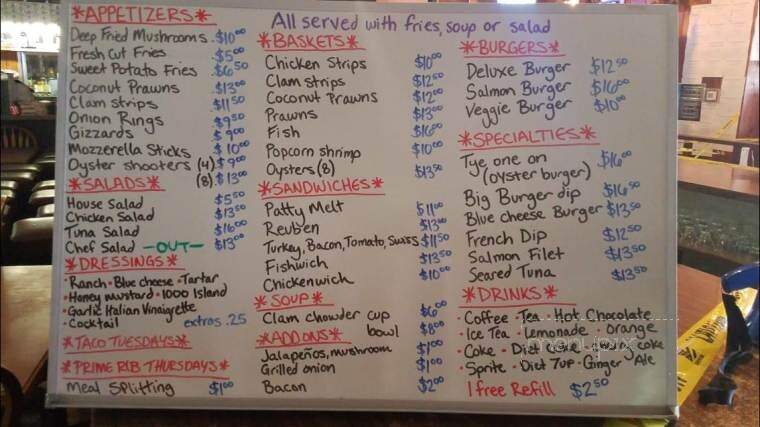 *APPETIZERS*
Deep Fried Mushrooms $10.00
Fresh Cut Fries $5.00
Sweet Potato Fries $6.50
Coconut Prawns $13.00
Clam strips $11.50
Onion Rings $9.50
Gizzards $9.00
Mozzerella Sticks $10.00
Oyster shooters (4) $9.00
(8) $13.00
*SALADS*
House Salad $5.50
Chicken Salad $13.50
Tuna Salad $16.00
Chef Salad -OUT- $13.00
*DRESSINGS*
• Ranch • Blue cheese • Tartar
• Honey mustard • 1000 Island
• Garlic Italian Vinaigrette
• Cocktail extras .25
*TACO TUESDAYS*
*PRIME RIB THURSDAYS*
Meal Splitting $1.00
All served with fries, soup or salad
*BASKETS*
Chicken Strips $10.00
Clam strips $12.50
Coconut Prawns $12.00
Prawns $13.00
Fish $16.00
Popcorn shrimp $10.00
Oysters (8) $13.50
*SANDWICHES*
Patty Melt $11.00
Reuben $13.00
Turkey, Bacon, Tomato, Swiss $11.50
Fishwich $13.50
Chickenwich $10.00
*SOUP*
Clam chowder cup $6.00
bowl $8.00
*ADD ONS*
Jalapeños, mushroom $1.00
Grilled onion $1.00
Bacon $2.00
*BURGERS*
Deluxe Burger $12.50
Salmon Burger $16.00
Veggie Burger $10.00
*SPECIALTIES*
Tye one on $16.00
(oyster burger)
Big Burger dip $16.50
Blue cheese Burger $13.50
French Dip $12.50
Salmon Filet $13.50
Seared Tuna $13.50
*DRINKS*
• Coffee • Tea • Hot Chocolate
• Ice Tea • Lemonade • Orange
• Coke • Diet Coke • coke
• Sprite • Diet 7up • Ginger Ale
1 free Refill $2.50
menupix